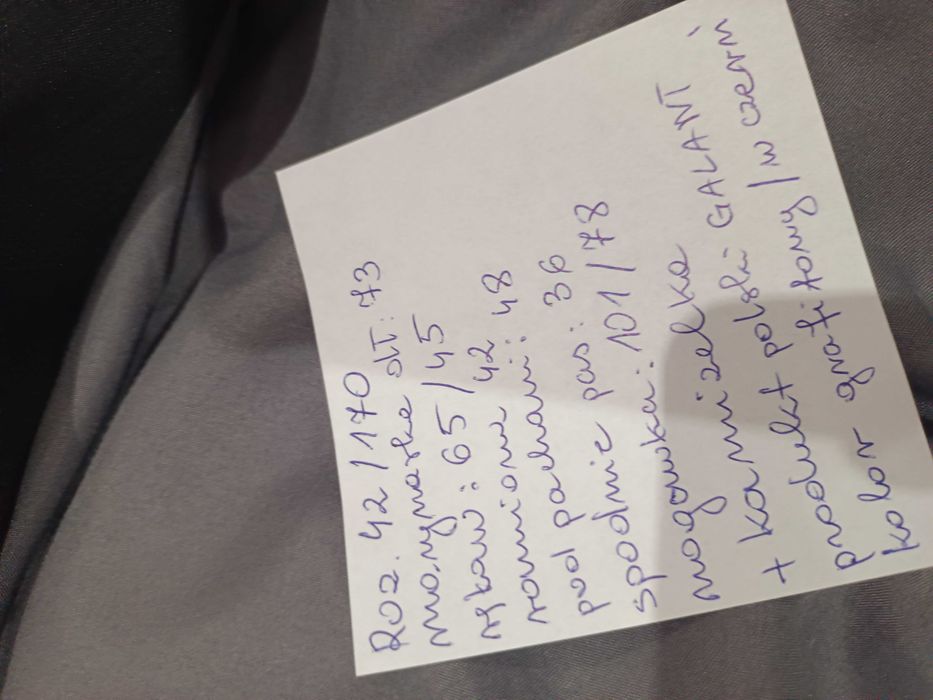 Roz. 42/170
marynarka dł: 73
rękaw: 65/45
ramiona 42
pod pachami: 48
spodnie pas: 36
nogawka: 101/78
+ kamizelka
produkt polski GALANT
kolor grafitowy/w czerń